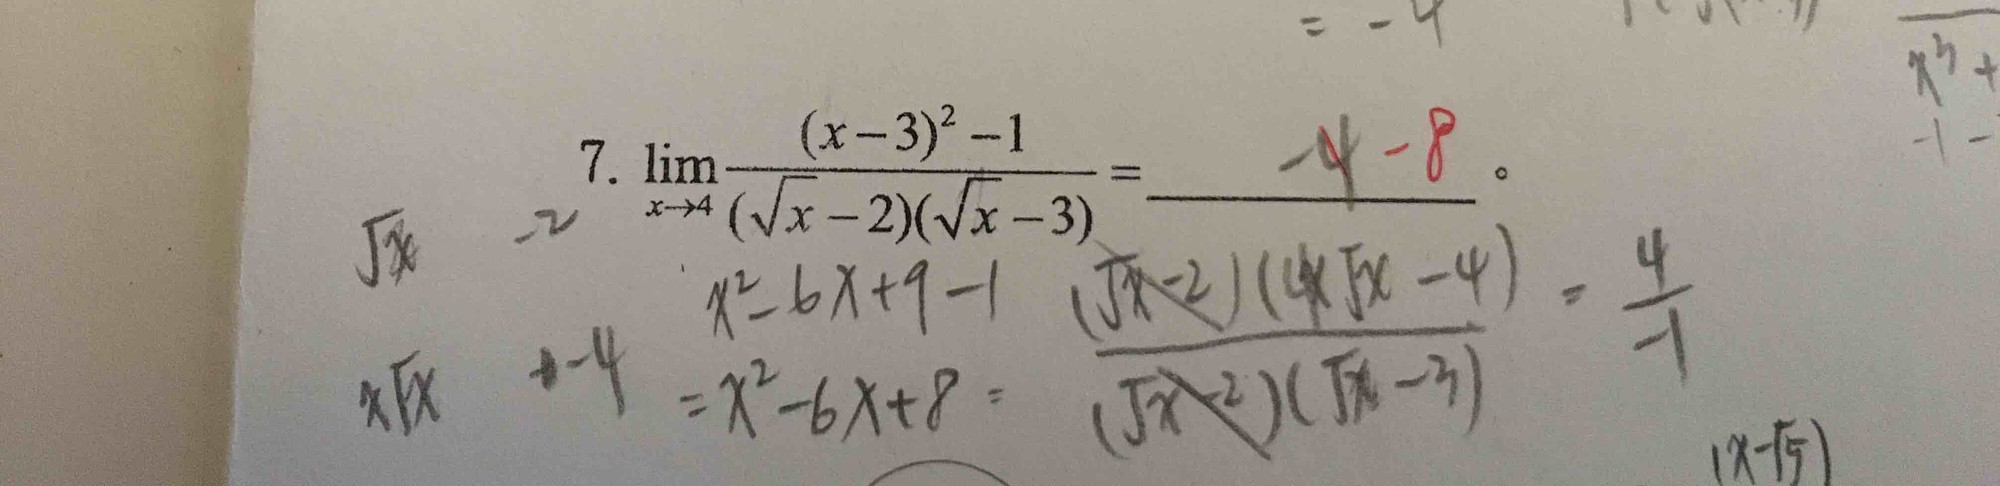 = -4
x³ +
-1 -
7. lim x→4 ((x-3)² -1)/((√x -2)(√x -3)) = -4 -8 。
√x -2
x² -6x+9-1 (√x-2)(x√x-4)/(√x-2)(√x-3) = 4/-1
x√x -4 = x²-6x+8 =
(x-√5)